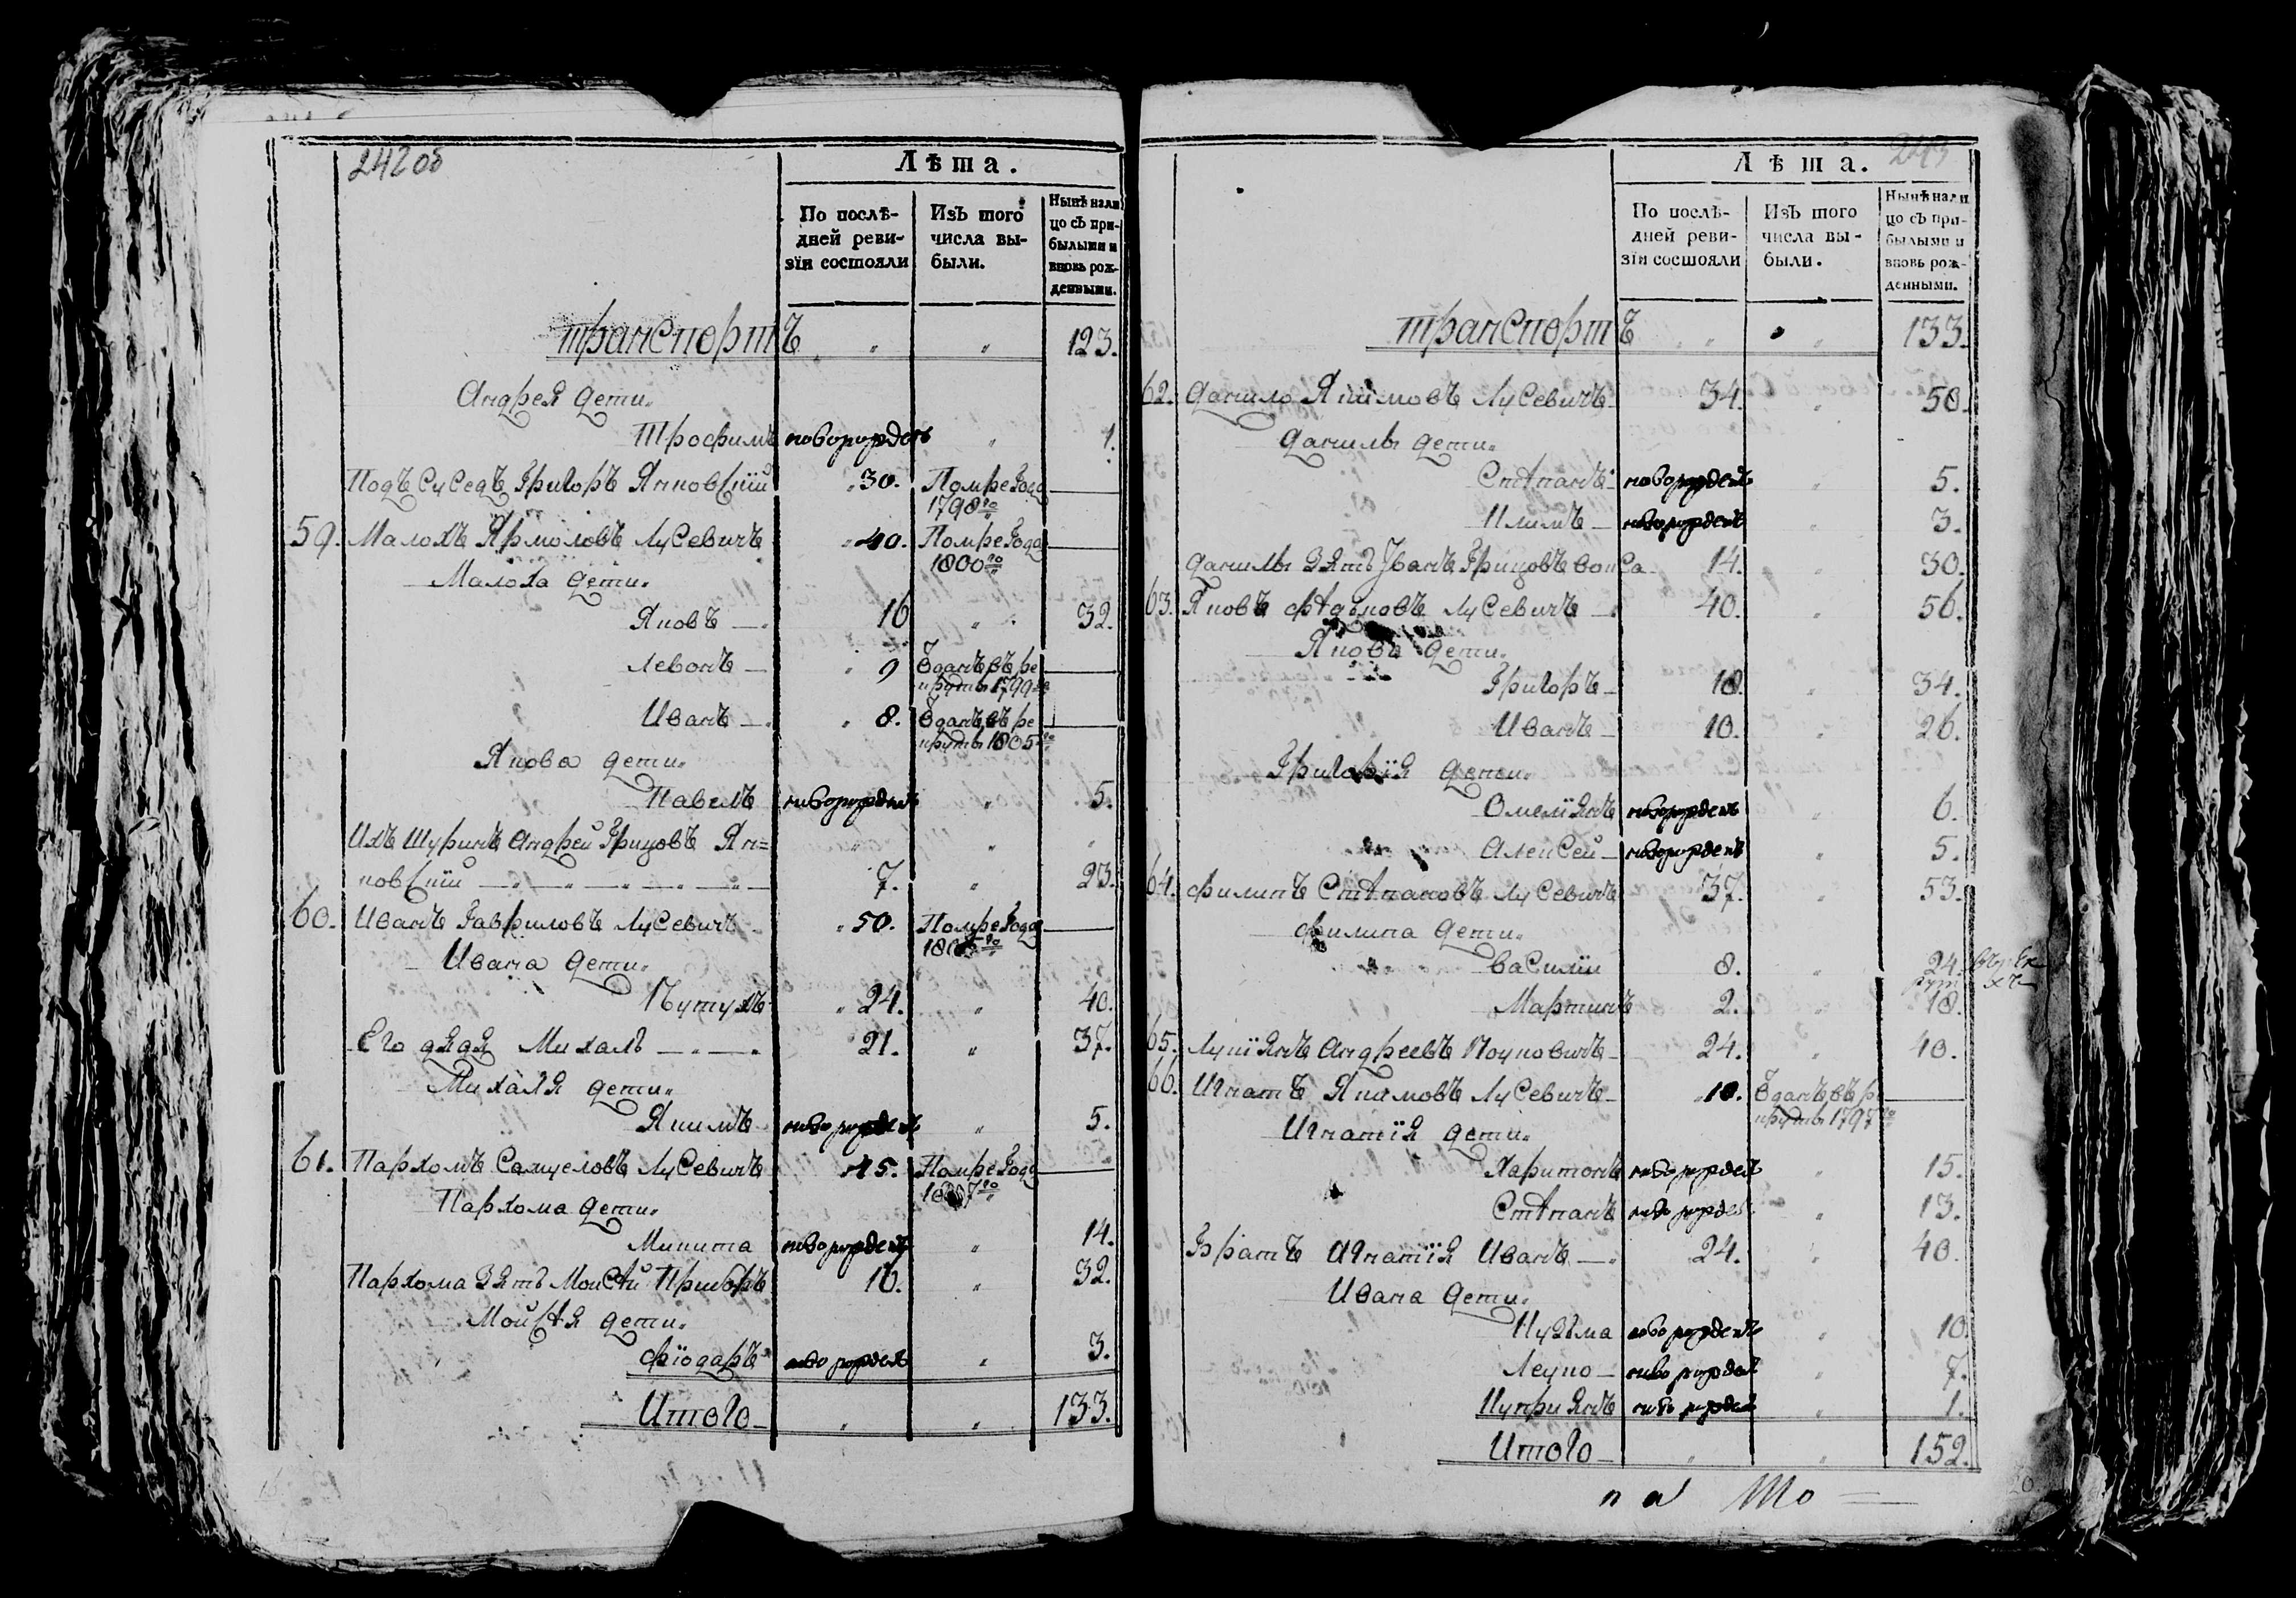 242об
Лѣта.
По послѣ-
дней реви-
зїи состояли
Изъ того
числа вы-
были.
Нынѣ нали
цо съ при-
былыми и
вновь рож-
денными.
транспортъ " " 123.
Андрея дети.
Трофимъ новорожденъ " 1.
Подъсуседъ Григоръ Янковский 30. Помре года
1798го
59. Малохъ Ярмоловъ Лусевичъ 40. Помре года
1800го
Малоха дети.
Яковъ — 16 " 32.
Левонъ — 9 Отданъ въ ре
круты 1799го
Иванъ — 8. Отданъ въ ре
круты 1805го
Якова дети.
Павелъ новорожденъ " 5.
Ихъ Шуринъ Андрей Грицовъ Ян=
ковский 7. " 23.
60. Иванъ Гавриловъ Лусевичъ 50. Помре года
Ивана дети.
24. " 40.
Его дядя Михалъ 21. " 37.
Михаля дети.
Якимъ новорожденъ " 5.
61. Пархомъ Самуеловъ Лусевичъ 45. Помре года
Пархома дети.
Микита новорожденъ " 14.
Пархома зять Моисей 16. " 32.
Моисея дети.
Фїодаръ новорожденъ " 3.
Итого " " 133.
243
Лѣта.
По послѣ-
дней реви-
зїи состояли
Изъ того
числа вы-
были.
Нынѣ нали
цо съ при-
былыми и
вновь рож-
денными.
транспортъ " " 133.
62. Данило Якимовъ Лусевичъ 34. " 50.
Данилы дети.
Стѣпанъ новорожденъ " 5.
Климъ — новорожденъ " 3.
Данилы зять Иванъ Грицовъ 14. " 30.
63. Яковъ Лусевичъ — 40. " 56.
Якова дети.
Григоръ — 18. " 34.
Иванъ — 10. " 26.
Григорїя дети.
Омелїянъ новорожденъ " 6.
Алексей — новорожденъ " 5.
64. Филипъ Стѣпановъ Лусевичъ 37. " 53.
Филипа дети.
Василїи 8. " 24.
Мартинъ 2. " 18.
65. Лукїянъ Андреевъ 24. " 40.
66. Игнатъ Якимовъ Лусевичъ 18. Отданъ въ ре
круты 1797го
Игнатїя дети.
Харитонъ новорожденъ " 15.
Стѣпанъ новорожденъ " 13.
Братъ Игнатїя Иванъ — 24. " 40.
Ивана дети.
Кузьма новорожденъ " 10.
новорожденъ " 7.
Куприянъ новорожденъ " 1.
Итого " " 152.